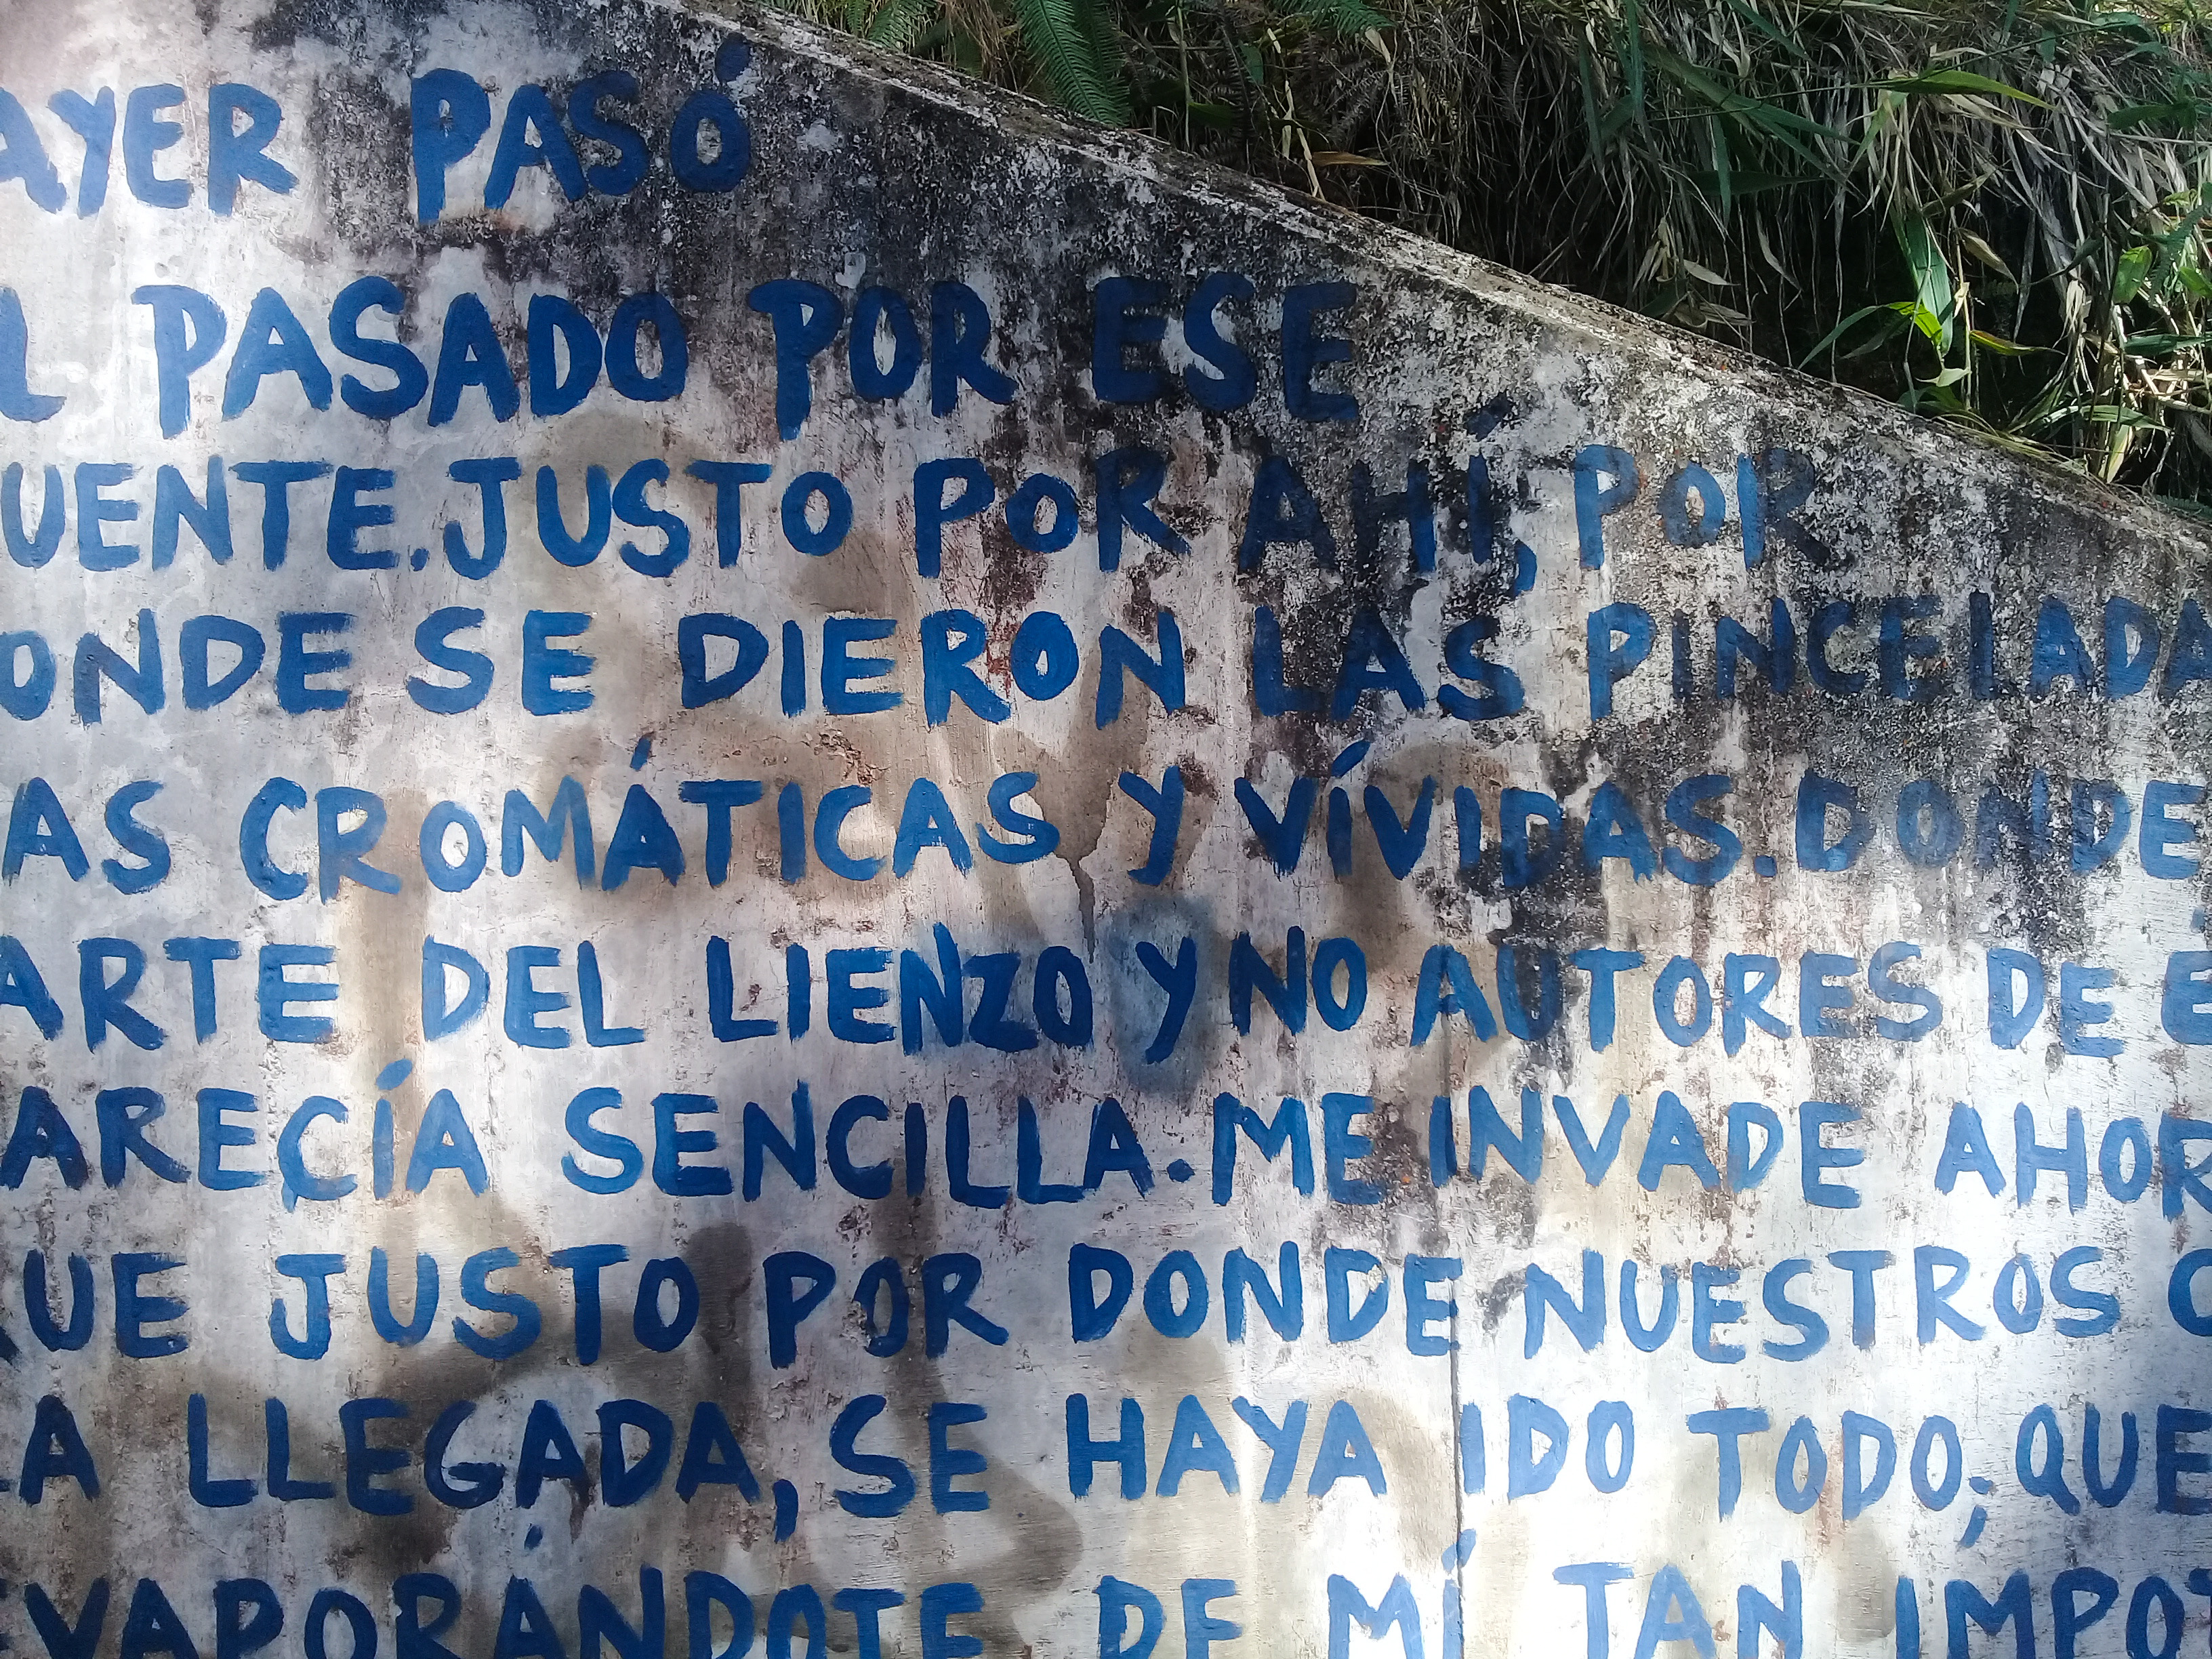 AYER PASÓ
L PASADO POR ESE
UENTE. JUSTO POR AHÍ, POR
ONDE SE DIERON LAS PINCELADA
AS CROMÁTICAS Y VÍVIDAS. DONDE
ARTE DEL LIENZO Y NO AUTORES DE E
ARECÍA SENCILLA. ME INVADE AHOR
QUE JUSTO POR DONDE NUESTROS
LA LLEGADA, SE HAYA IDO TODO; QUE
EVAPORÁNDOTE DE MÍ TAN ÍMPOT